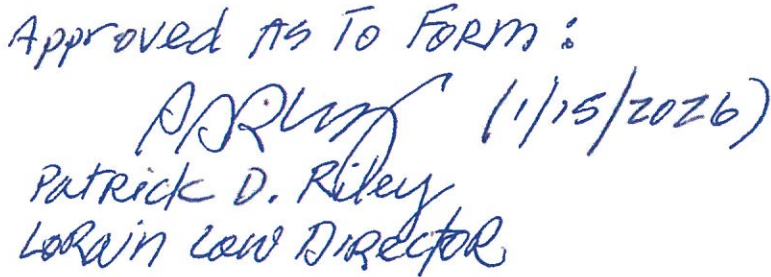 Approved As To Form:
(1/15/2026)
Patrick D. Riley
Lorain Law Director